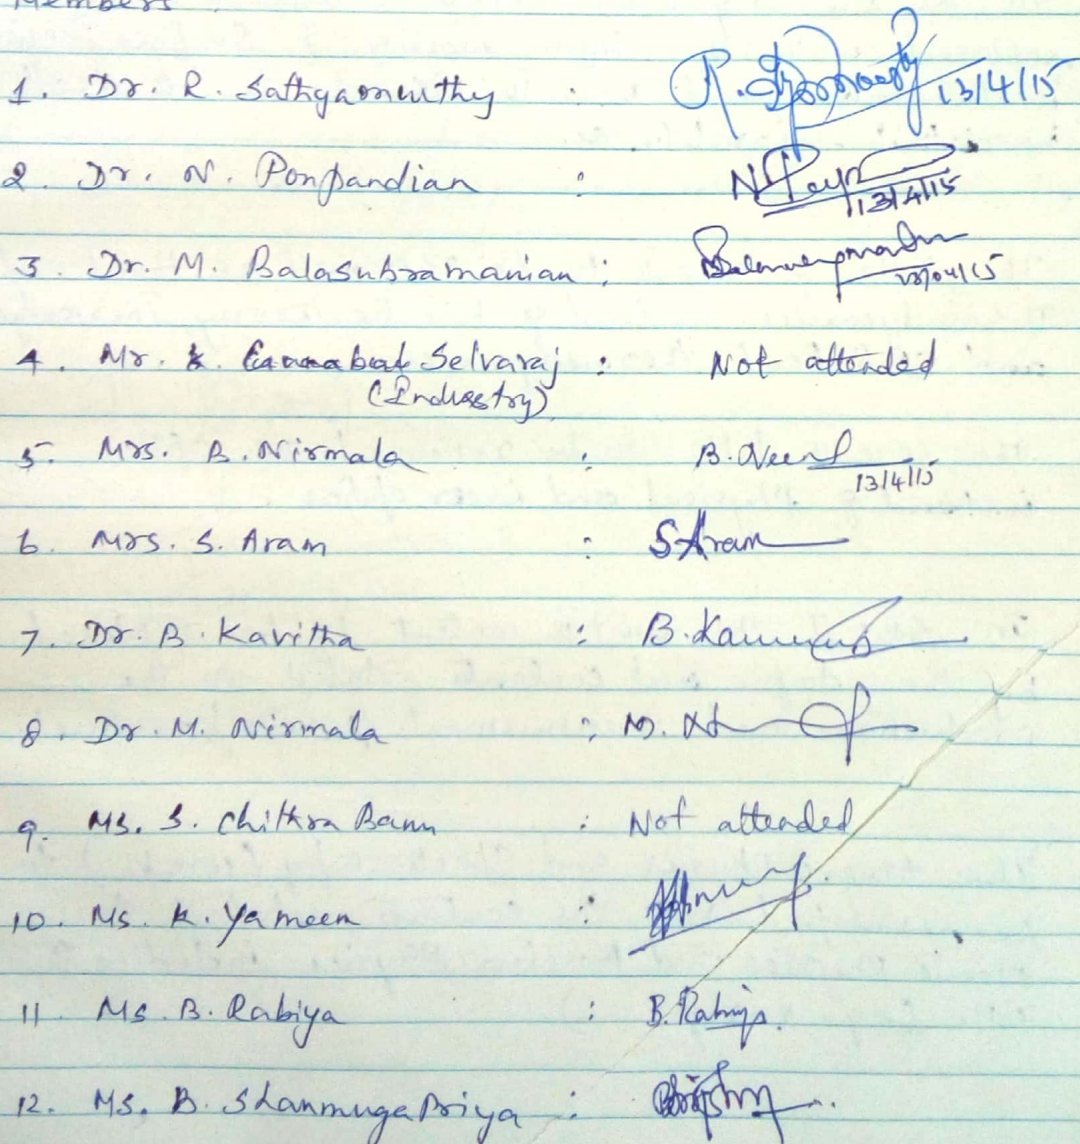 Members
1. Dr. R. Sathyamurthy : R. 13/4/15
2. Dr. N. Ponpandian : 13/4/15
3. Dr. M. Balasubramanian : 13/04/15
4. Mr. Selvaraj : Not attended
(Industry)
5. Mrs. B. Nirmala : B. 13/4/15
6. Mrs. S. Aram : S Aram
7. Dr. B. Kavitha : B.
8. Dr. M. Nirmala : M.
9. Ms. S. Chithra Banu : Not attended
10. Ms. K. Yameen :
11. Ms. B. Rabiya : B. Rabiya.
12. Ms. B. Shanmuga Priya :